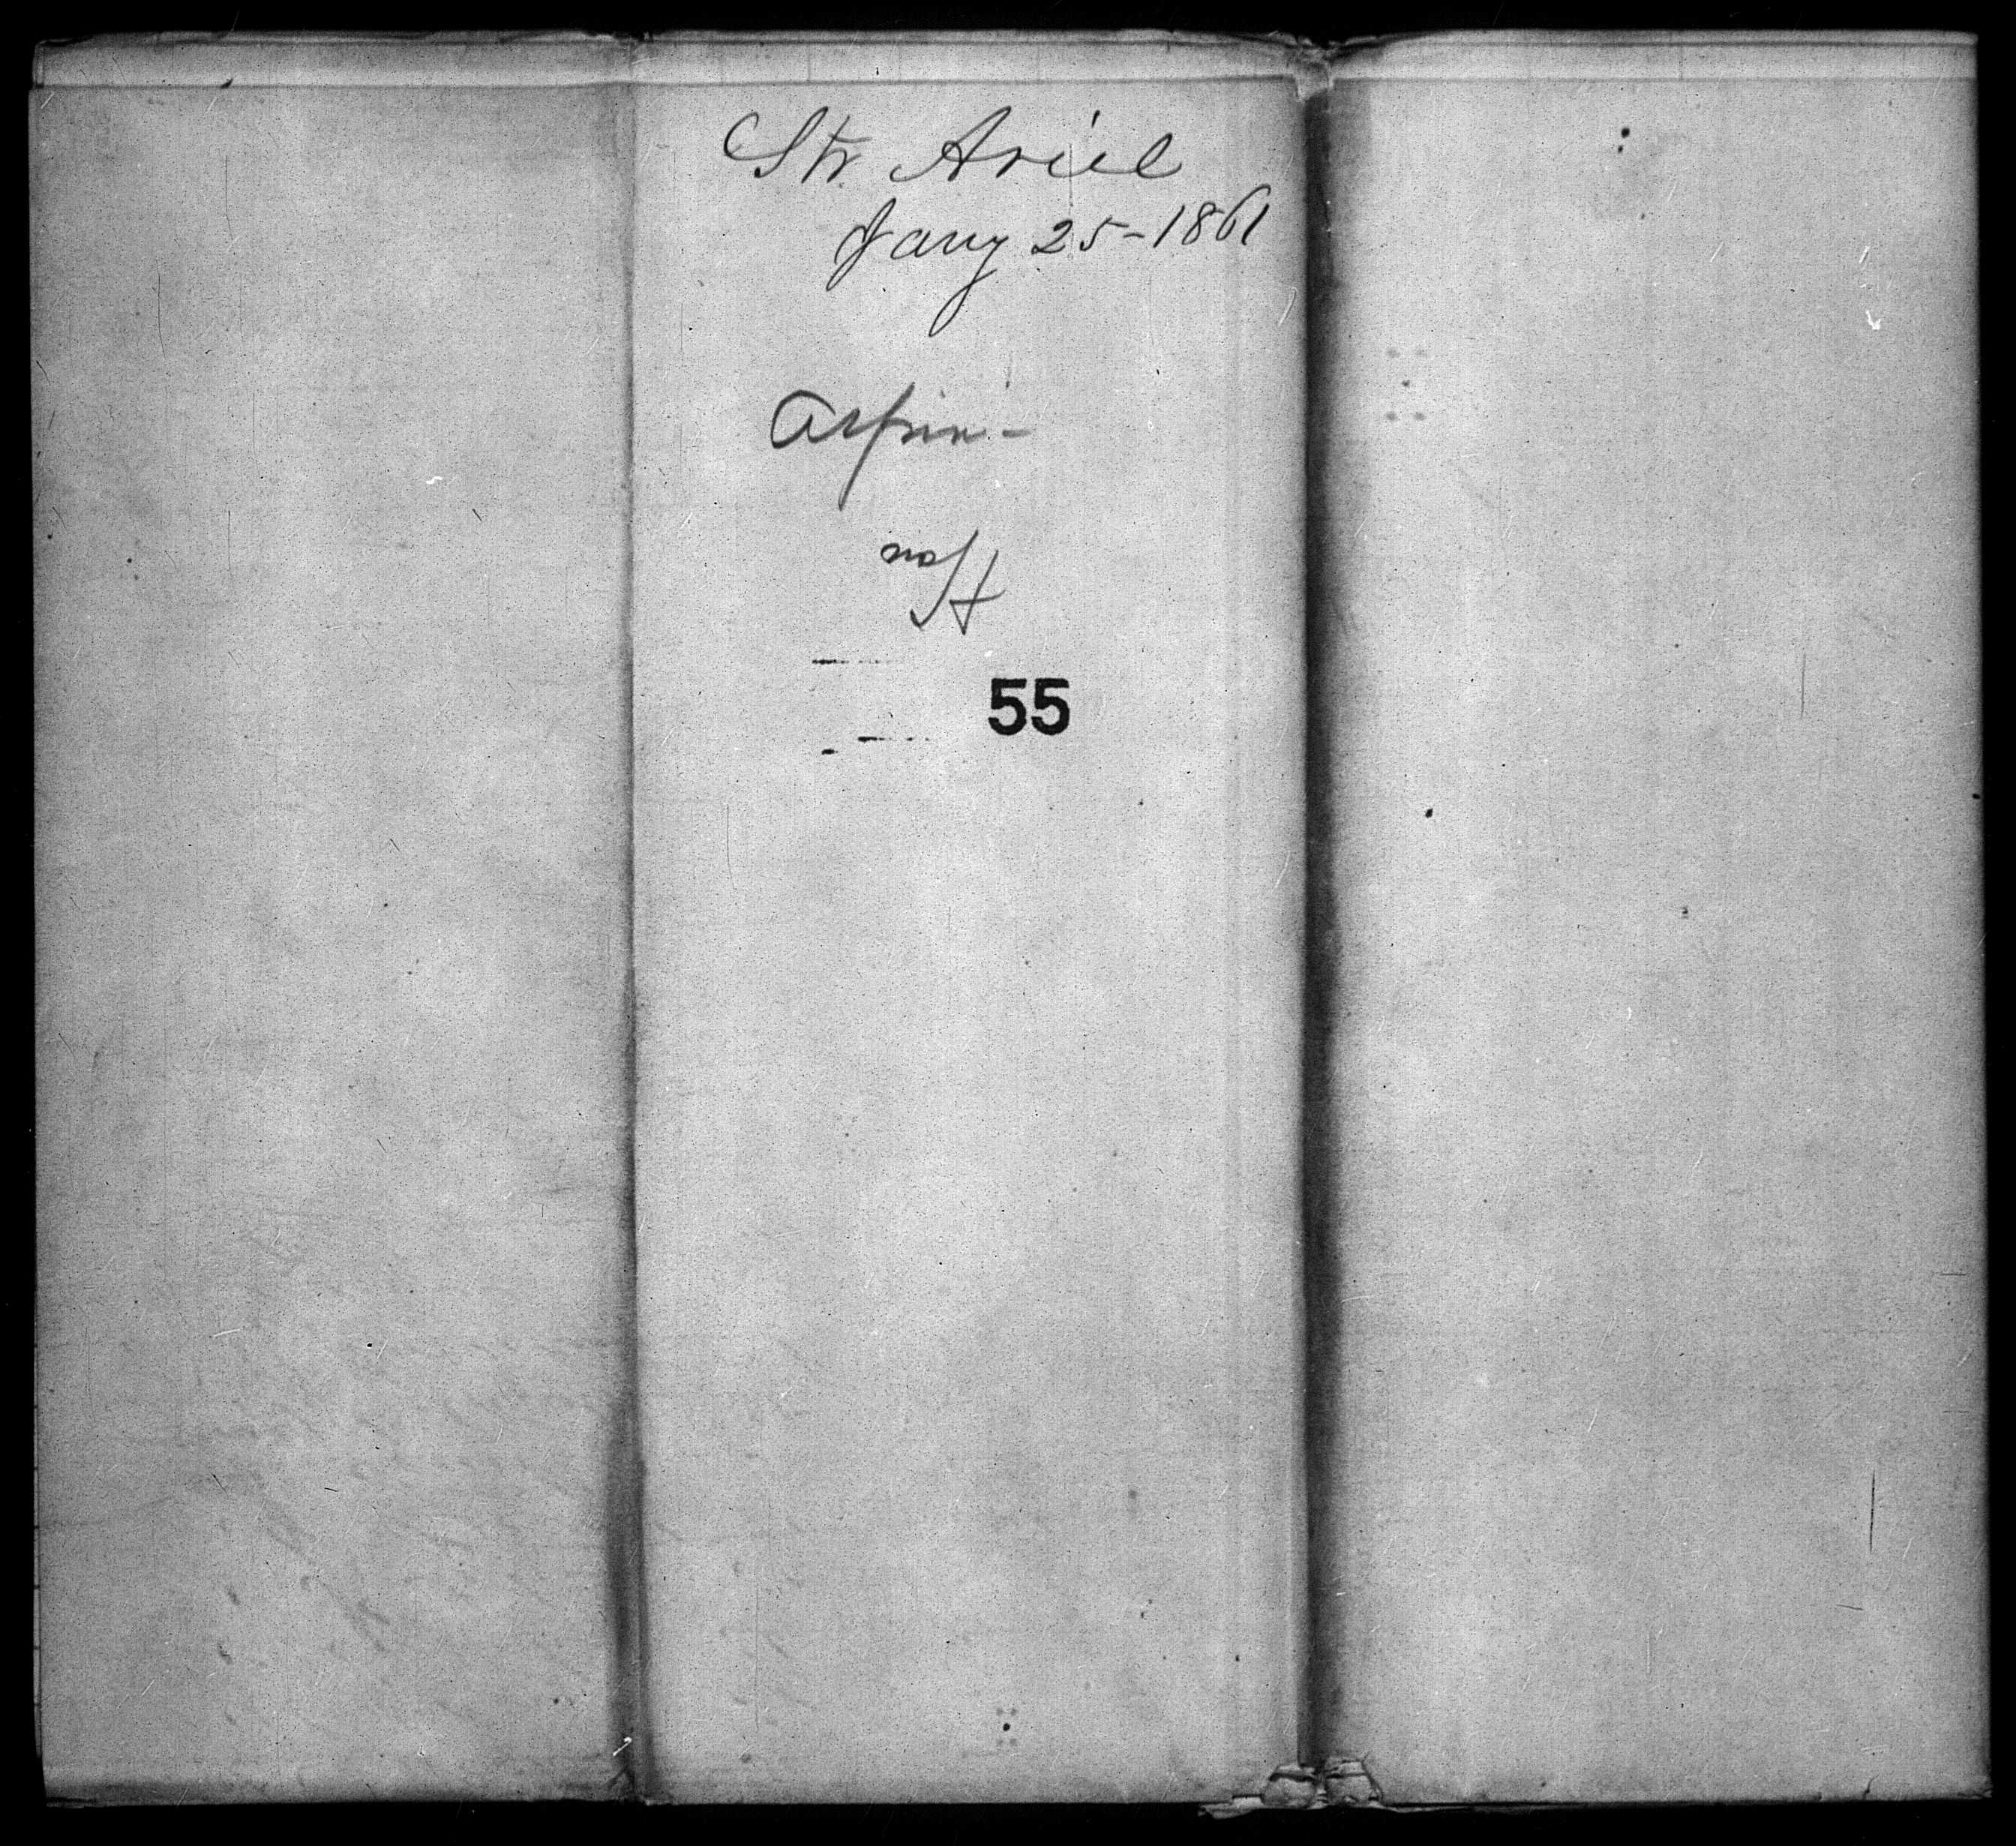 Str Ariel
Jany 25-1861
Aspin-
55